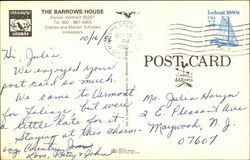 THE BARROWS HOUSE
Dorset, Vermont 05251
Tel. 802 - 867-4455
Charles and Marilyn Schubert
Innkeepers
10/14
Hi, Julia,
We enjoyed your
post card so much.
We came to Vermont
for foliage, but were
a little late for it.
Staying at this charm-
ing Country Inn
Love, Betty & John
Iceboat 1880s
USA
POST CARD
Miss Julia
2 E. Pleasant Ave
Maywood, N.J.
07607